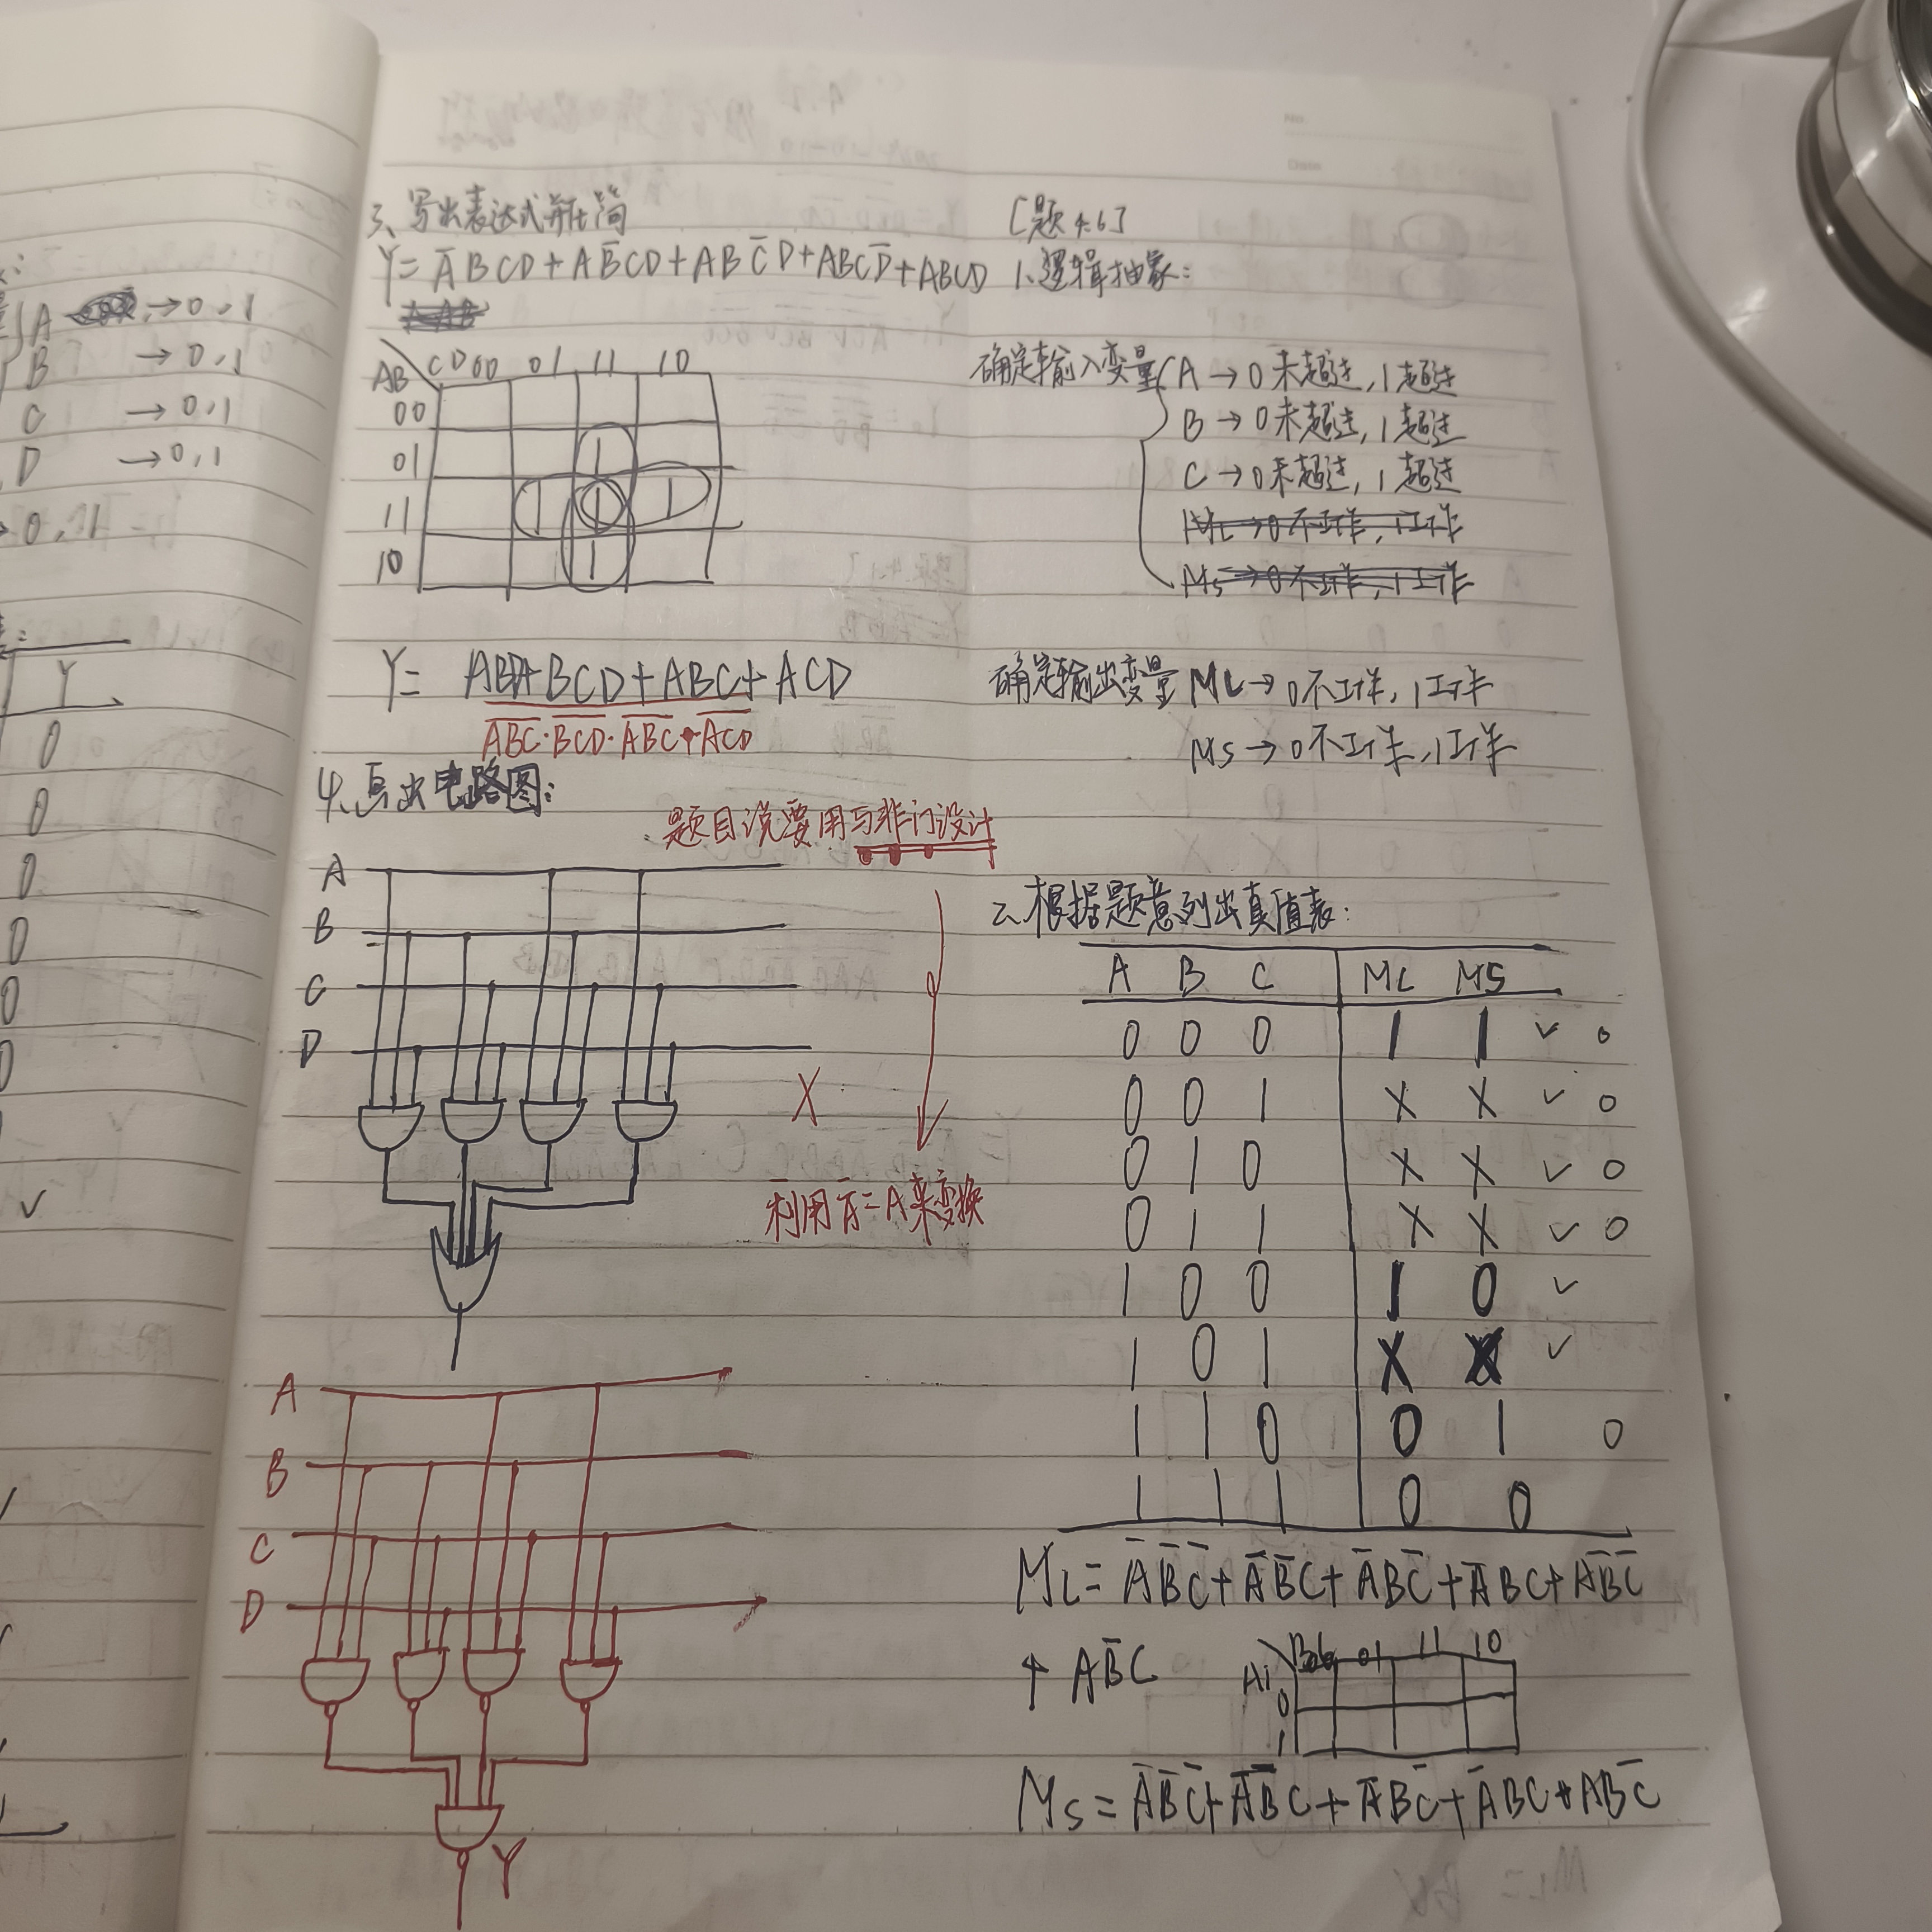 A → 0, 1
B → 0, 1
C → 0, 1
D → 0, 1
→ 0, 1
Y
0
0
0
0
0
0
✓
3、写出表达式并化简
Y = A̅BCD + AB̅CD + ABC̅D + ABCD̅ + ABCD
AB CD 00 01 11 10
00
01 1
11 1 1 1
10 1
Y = ABD + BCD + ABC + ACD
A̅B̅C̅ · B̅C̅D̅ · A̅B̅C̅ · A̅C̅D̅
4、画出电路图:
题目说要用与非门设计
A
B
C
D
X
利用 A̿ = A 来变换
A
B
C
D
Y
[题4.6]
1、逻辑抽象:
确定输入变量 A → 0 未超过, 1 超过
B → 0 未超过, 1 超过
C → 0 未超过, 1 超过
ML → 0 不工作, 1 工作
MS → 0 不工作, 1 工作
确定输出变量 ML → 0 不工作, 1 工作
MS → 0 不工作, 1 工作
2、根据题意列出真值表:
A B C ML MS
0 0 0 1 1 ✓ 0
0 0 1 X X ✓ 0
0 1 0 X X ✓ 0
0 1 1 X X ✓ 0
1 0 0 1 0 ✓
1 0 1 X X ✓
1 1 0 0 1 0
1 1 1 0 0
ML = A̅B̅C̅ + A̅B̅C + A̅BC̅ + A̅BC + AB̅C̅
+ AB̅C
01 11 10
0
1
MS = A̅B̅C̅ + A̅B̅C + A̅BC̅ + A̅BC + ABC̅